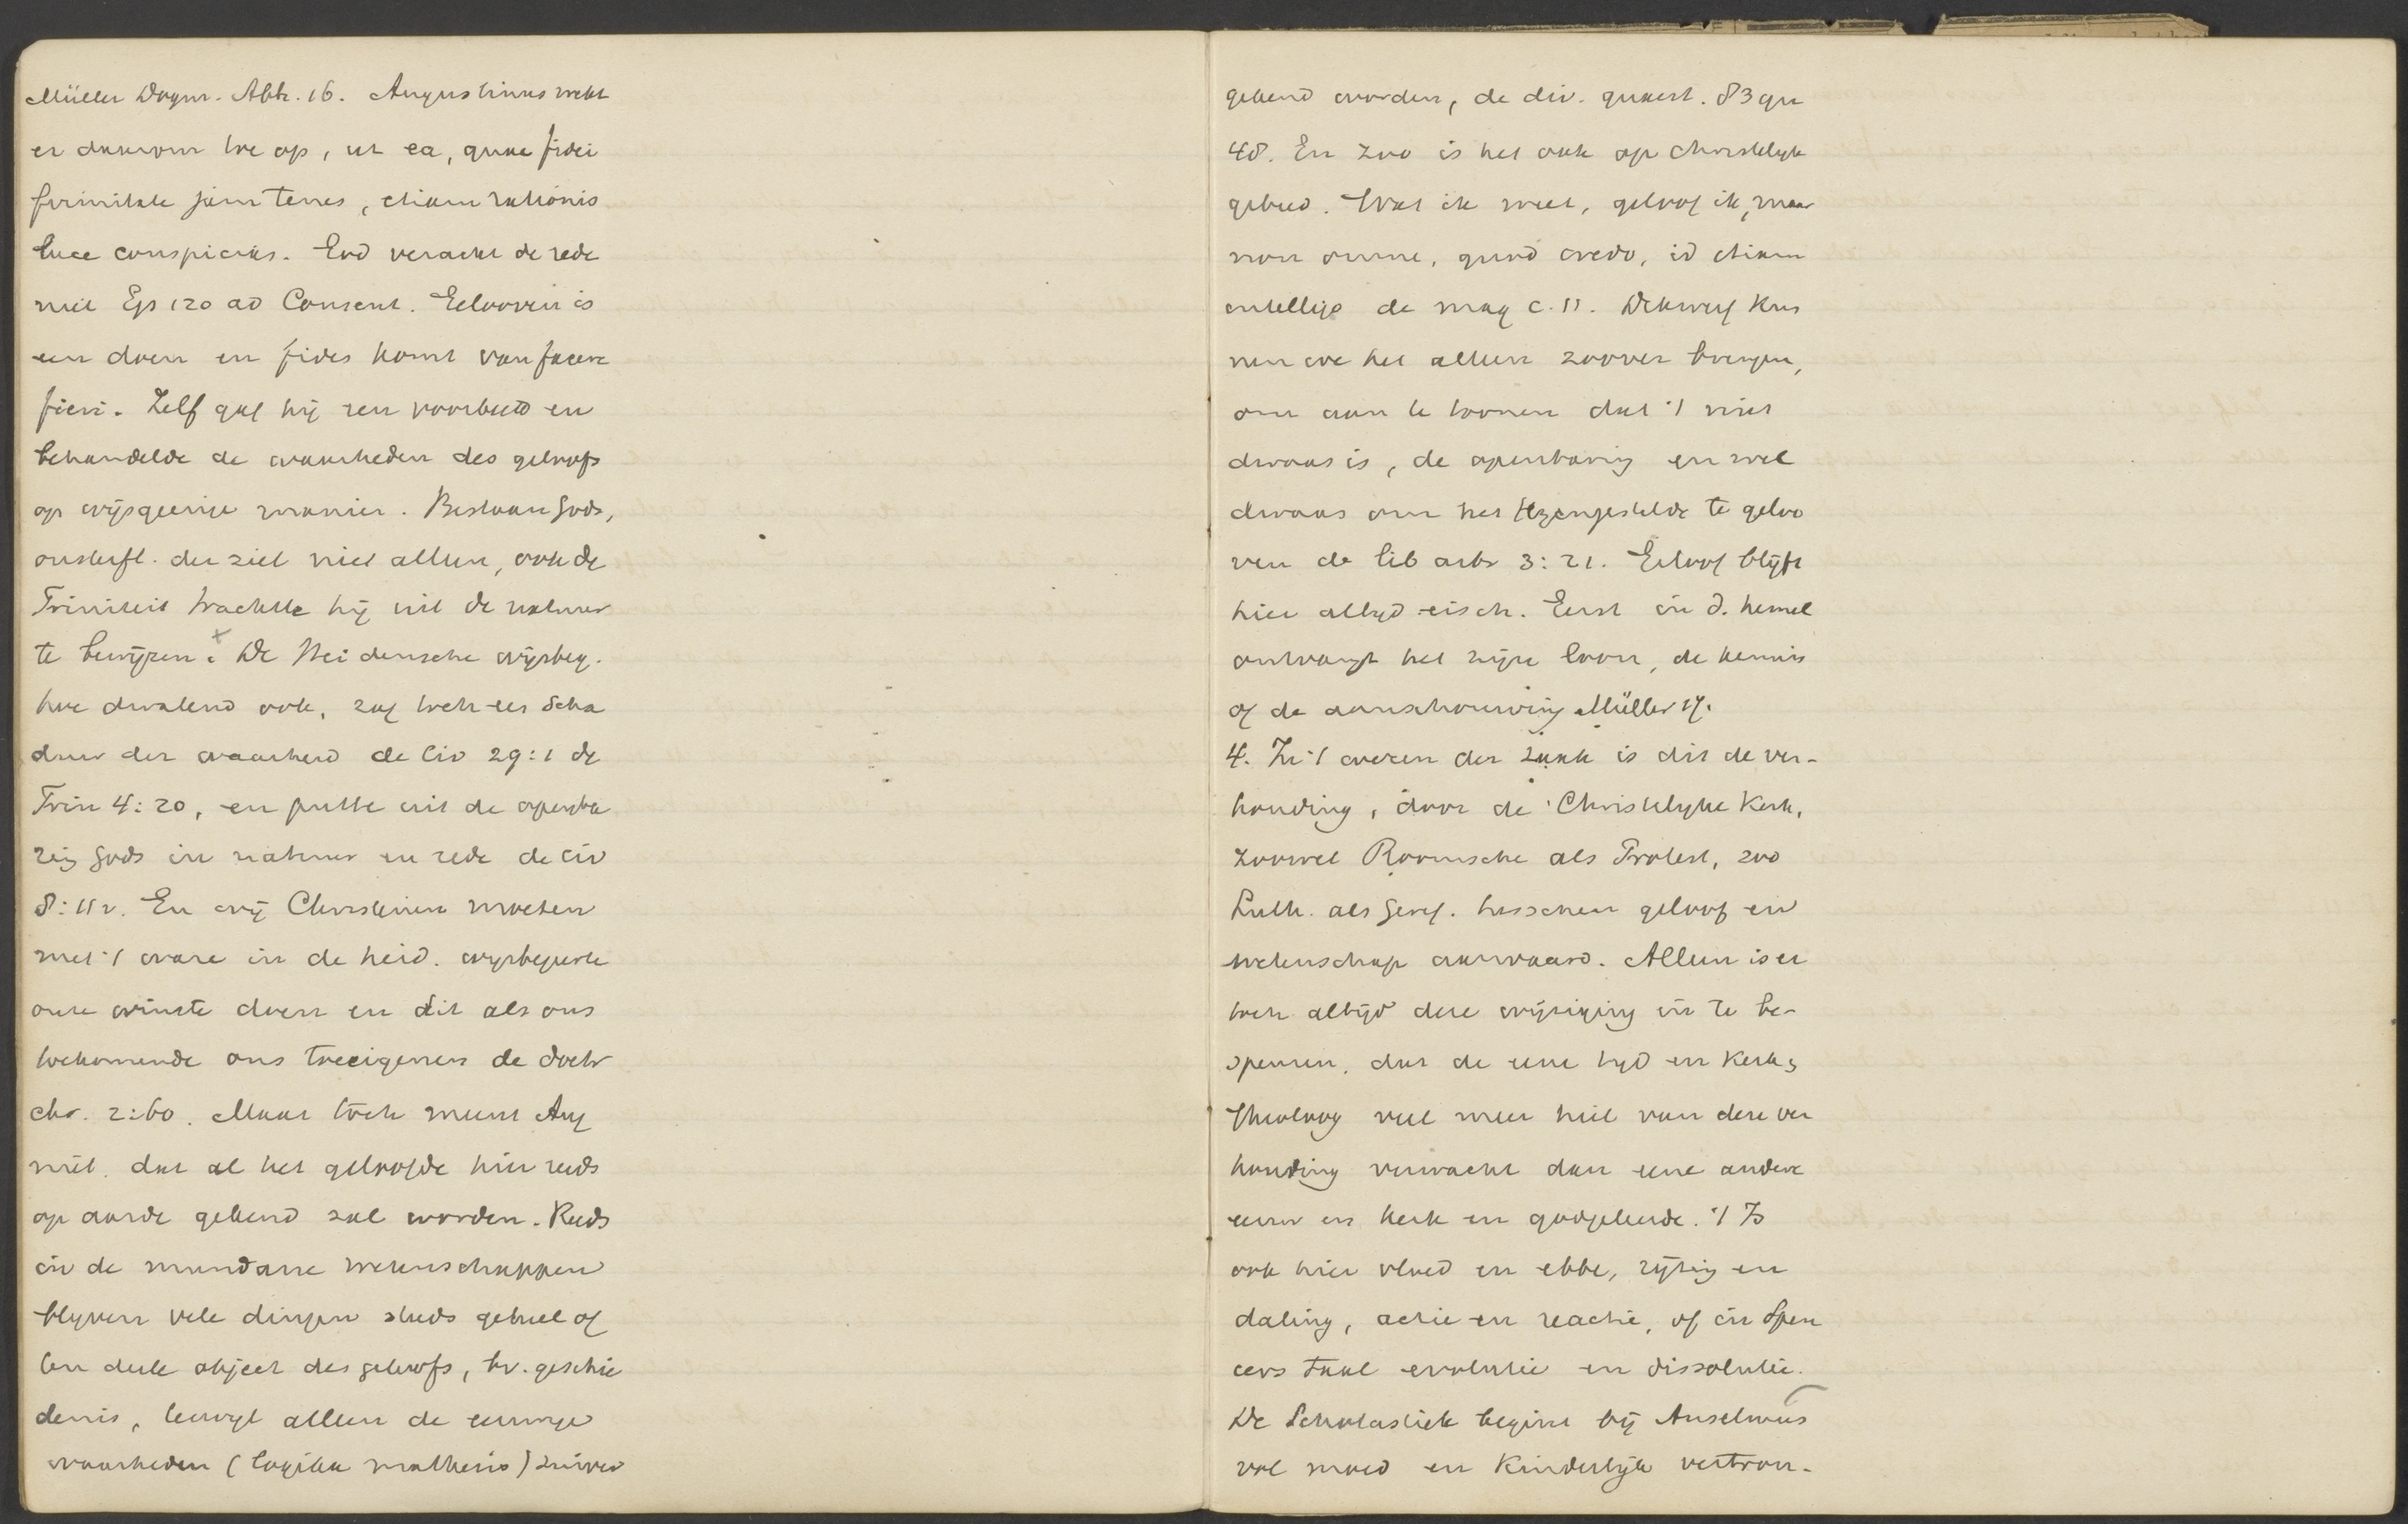 Müller Dogm. Abh. 16. Augustinus wekt
er daarom toe op, ut ea, quae fidei
firmitate jam tenes, etiam rationis
luce conspicias. God veracht de rede
niet Ep 120 ad Consent. Gelooven is
een doen en fides komt van facere
fieri. Zelf gaf hij een voorbeeld en
behandelde de waarheden des geloofs
op wijsgeerige manier. Bestaan Gods,
onsterfl. der ziel niet alleen, ook de
Triniteit trachtte hij uit de natuur
te bewijzen. De Heidensche wijsbeg.
hoe dwalend ook, zag toch een scha
duw der waarheid de Civ 29:1 de
Trin 4:20, en putte uit de openba
ring Gods in natuur en rede de civ
8:11 v. En wij Christenen moeten
met 't ware in de heid. wijsbegeerte
onze winste doen en dit als ons
toekomende ons toeeigenen de doctr
chr. 2:60. Maar tòch meent Aug
niet, dat al het geloofde hier reeds
op aarde gekend zal worden. Reeds
in de mundane wetenschappen
blijven vele dingen steeds geheel of
ten deele object des geloofs, bv. geschie
denis, terwijl alleen de eeuwige
waarheden (logika mathesis) zuiver
gekend worden, de div. quaest. 83 qu
48. En zoo is het ook op christelijk
gebied. Wat ik weet, geloof ik, maar
non omne, quod credo, id etiam
intelligo de mag c. 11. Dikwerf kun
nen we het alleen zoover brengen,
om aan te toonen dat 't niet
dwaas is, de openbaring en wel
dwaas om het tegengestelde te geloo
ven de lib arb 3:21. Geloof blijft
hier altijd eisch. Eerst in d. hemel
ontvangt het zijn loon, de kennis
of de aanschouwing Müller 17.
4. In 't wezen der zaak is dit de ver-
houding, door de Christelijke Kerk,
zoowel Roomsche als Protest, zoo
Luth. als Geref. tusschen geloof en
wetenschap aanvaard. Alleen is er
toch altijd deze wijziging in te be-
speuren, dat de eene tijd en Kerk en
Theoloog veel meer heil van deze ver
houding verwacht dan eene andere
eeuw en kerk en godgeleerde. 't Is
ook hier vloed en ebbe, rijzing en
daling, actie en reactie, of in Spen
cers taal evolutie en dissolutie.
De Scholastiek begint bij Anselmus
vol moed en Kinderlijk vertrou-